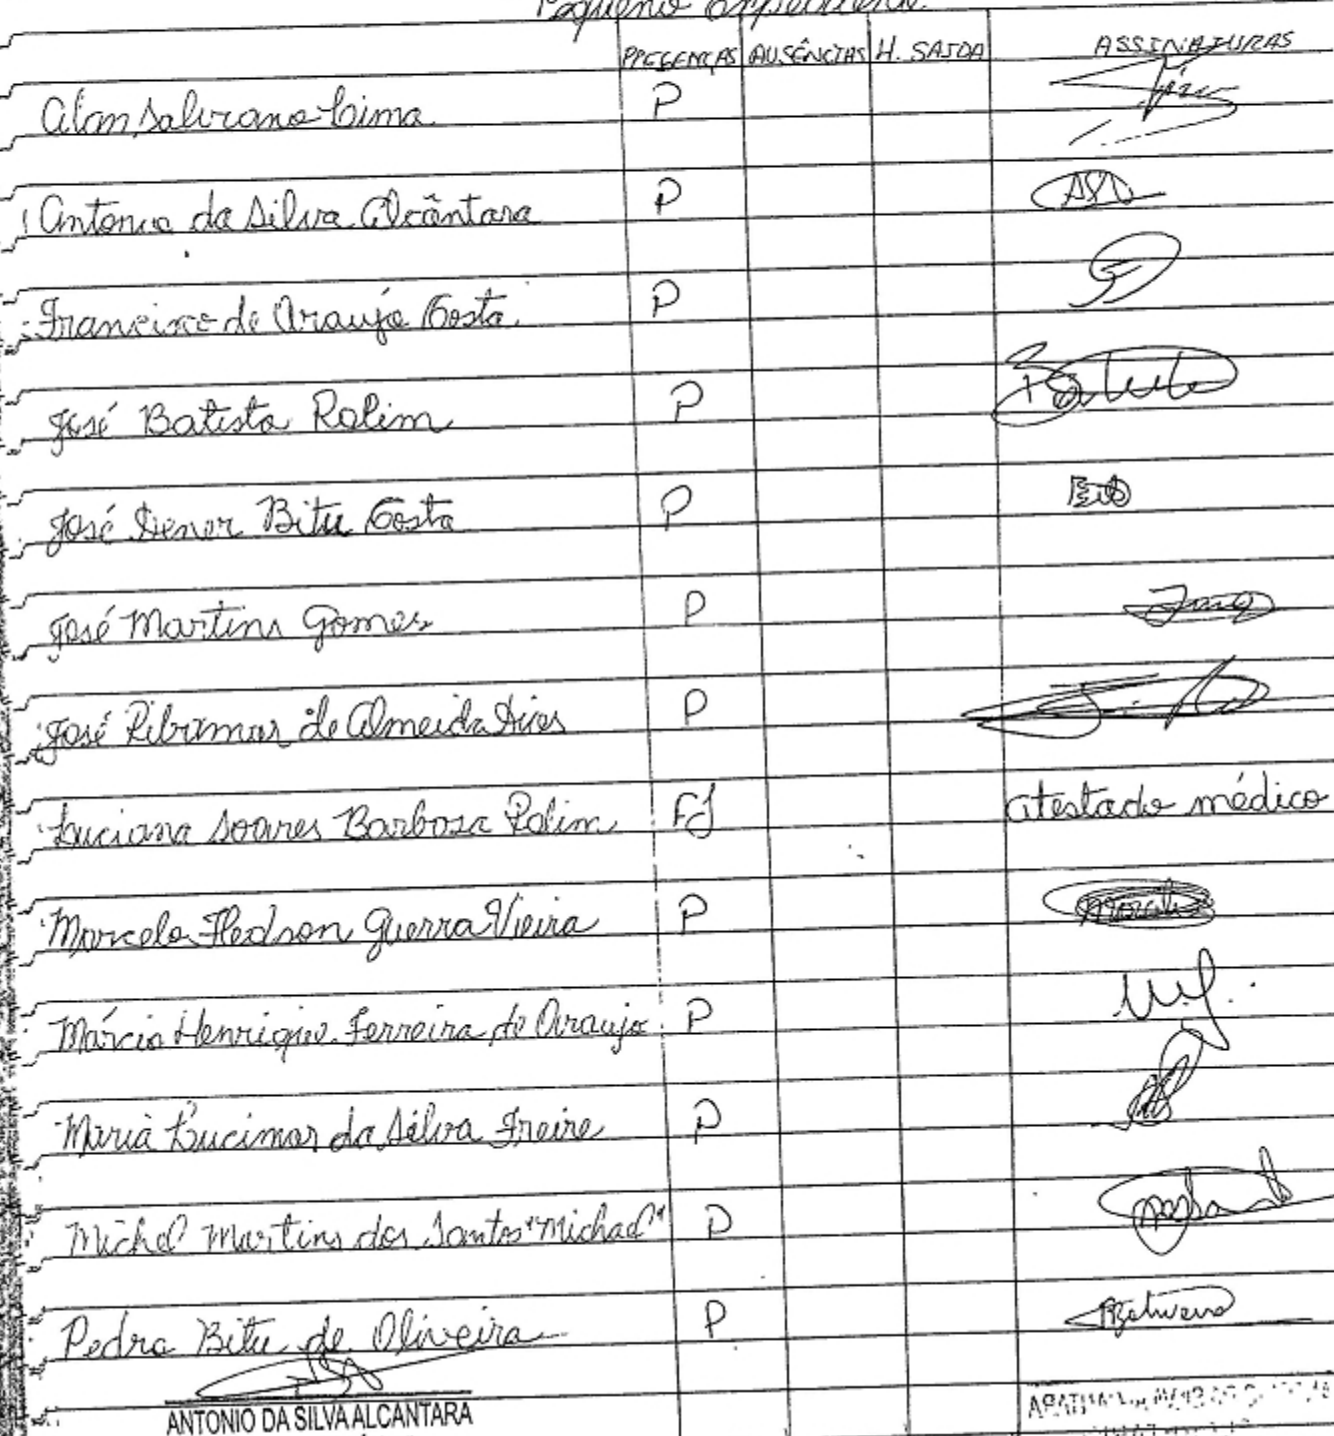 Pequeno
PRESENÇAS AUSÊNCIAS H. SAIDA ASSINATURAS
Alan Salviano Lima P
Antonio da Silva Alcântara P ASA
Francisco de Araujo Costa P
José Batista Rolim P Batista
José Dener Bitu Costa P
José Martins Gomes P Jmg
José Ribamar de Almeida Aires P
Luciana Soares Barbosa Rolim FJ atestado médico
Marcelo Hedson Guerra Vieira P
Márcio Henrique Ferreira de Araujo P
Maria Lucimar da Silva Freire P
Michel Martins dos Santos "Michael" P
Pedro Bitu de Oliveira P
ANTONIO DA SILVA ALCANTARA